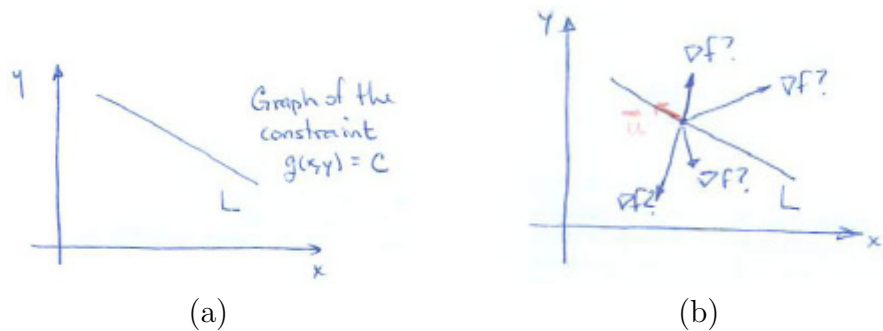 y
Graph of the
constraint
g(x,y) = C
L
x
(a)
y
∇f?
∇f?
ū
∇f?
∇f?
L
x
(b)